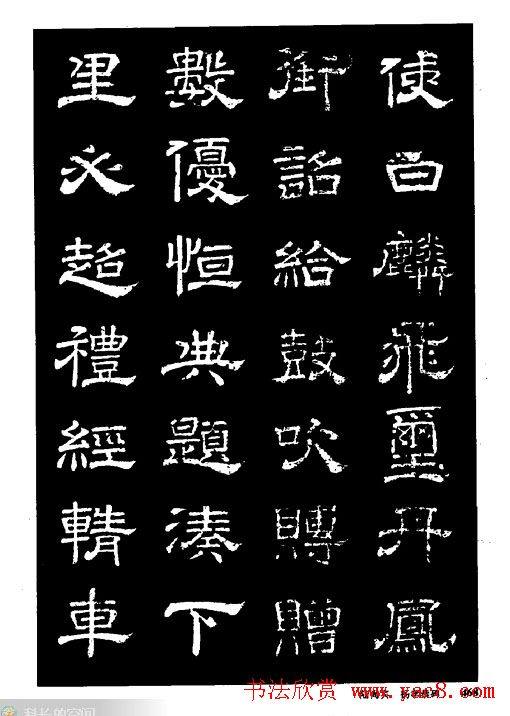 使白麟飛璽丹鳳
御詔給鼓吹賻贈
數優恒典題湊下
里必超禮經輤車
书法欣赏 www.yac8.com
科长的空间